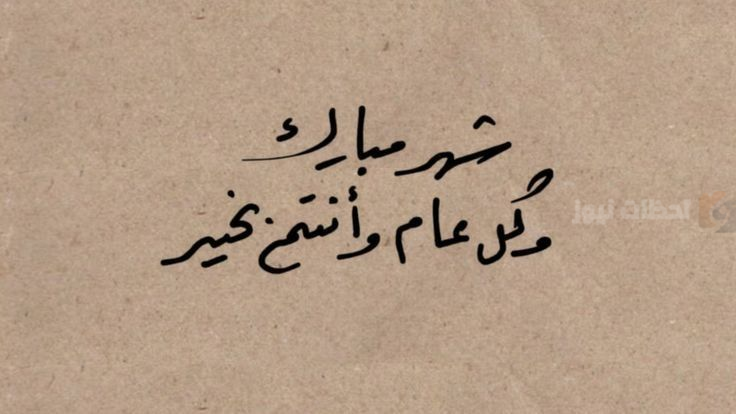 شهر مبارك
وكل عام وأنتم بخير
لحظات نيوز